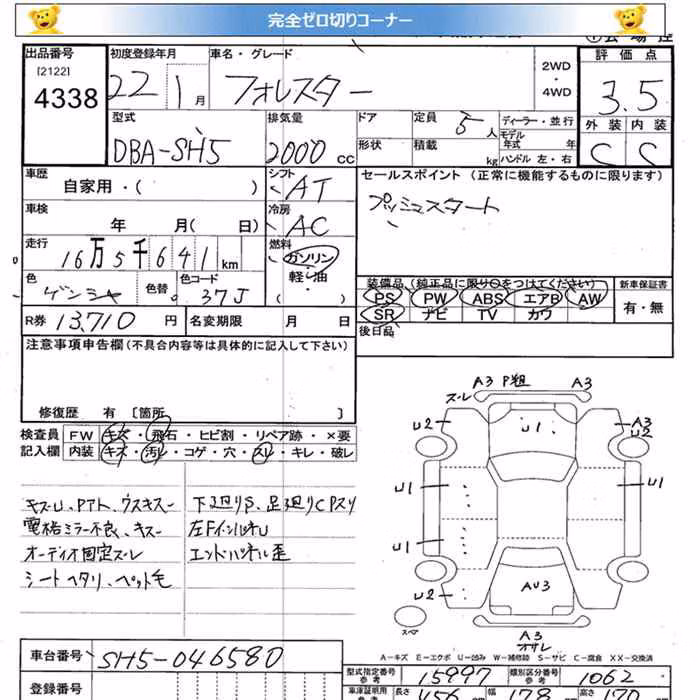 完全ゼロ切りコーナー
出品番号
[2122]
4338
初度登録年月
22 1 月
車名・グレード
フォレスター
2WD
・
4WD
評価点
3.5
外装 内装
C C
型式
DBA-SH5
排気量
2000 CC
ドア
形状
定員 5 人
積載 kg
ディーラー・並行
モデル年式 年
ハンドル 左・右
車歴
自家用・( )
シフト
AT
セールスポイント (正常に機能するものに限ります)
プッシュスタート
車検
年 月( 日)
冷房
AC
走行
16万5千641 km
燃料
ガソリン
軽・油
( )
色
ゲンシャ
色替
色コード
37J
装備品(純正品に限り○をつけてください)
PS PW ABS エアB AW
SR ナビ TV カワ
新車保証書
有・無
後日品
R券 13,710 円
名変期限 月 日
注意事項申告欄(不具合内容等は具体的に記入して下さい)
修復歴 有 [箇所 ]
検査員
記入欄
FW キズ・飛石・ヒビ割・リペア跡・×要
内装 キズ・汚レ・コゲ・穴・スレ・キレ・破レ
キズU、Pアト、ウスキズ
電格ミラー不良、キズ
オーディオ固定ズレ
シートヘタリ、ペット毛
下廻りS、足廻りCPスリ
左FインパネU
エンドパネル歪
A3 P粗 A3
ズレ
U2 U1 A3
U2
U1 U1
U1
U2 AU3
スペア
A3
オサレ
A-キズ E-エクボ U-凹み W-補修跡 S-サビ C-腐食 XX-交換済
車台番号 SH5-046580
登録番号
型式指定番号
参考 15997
類別区分番号
参考 1062
車庫証明用
参考
長さ 456 幅 178 高さ 170